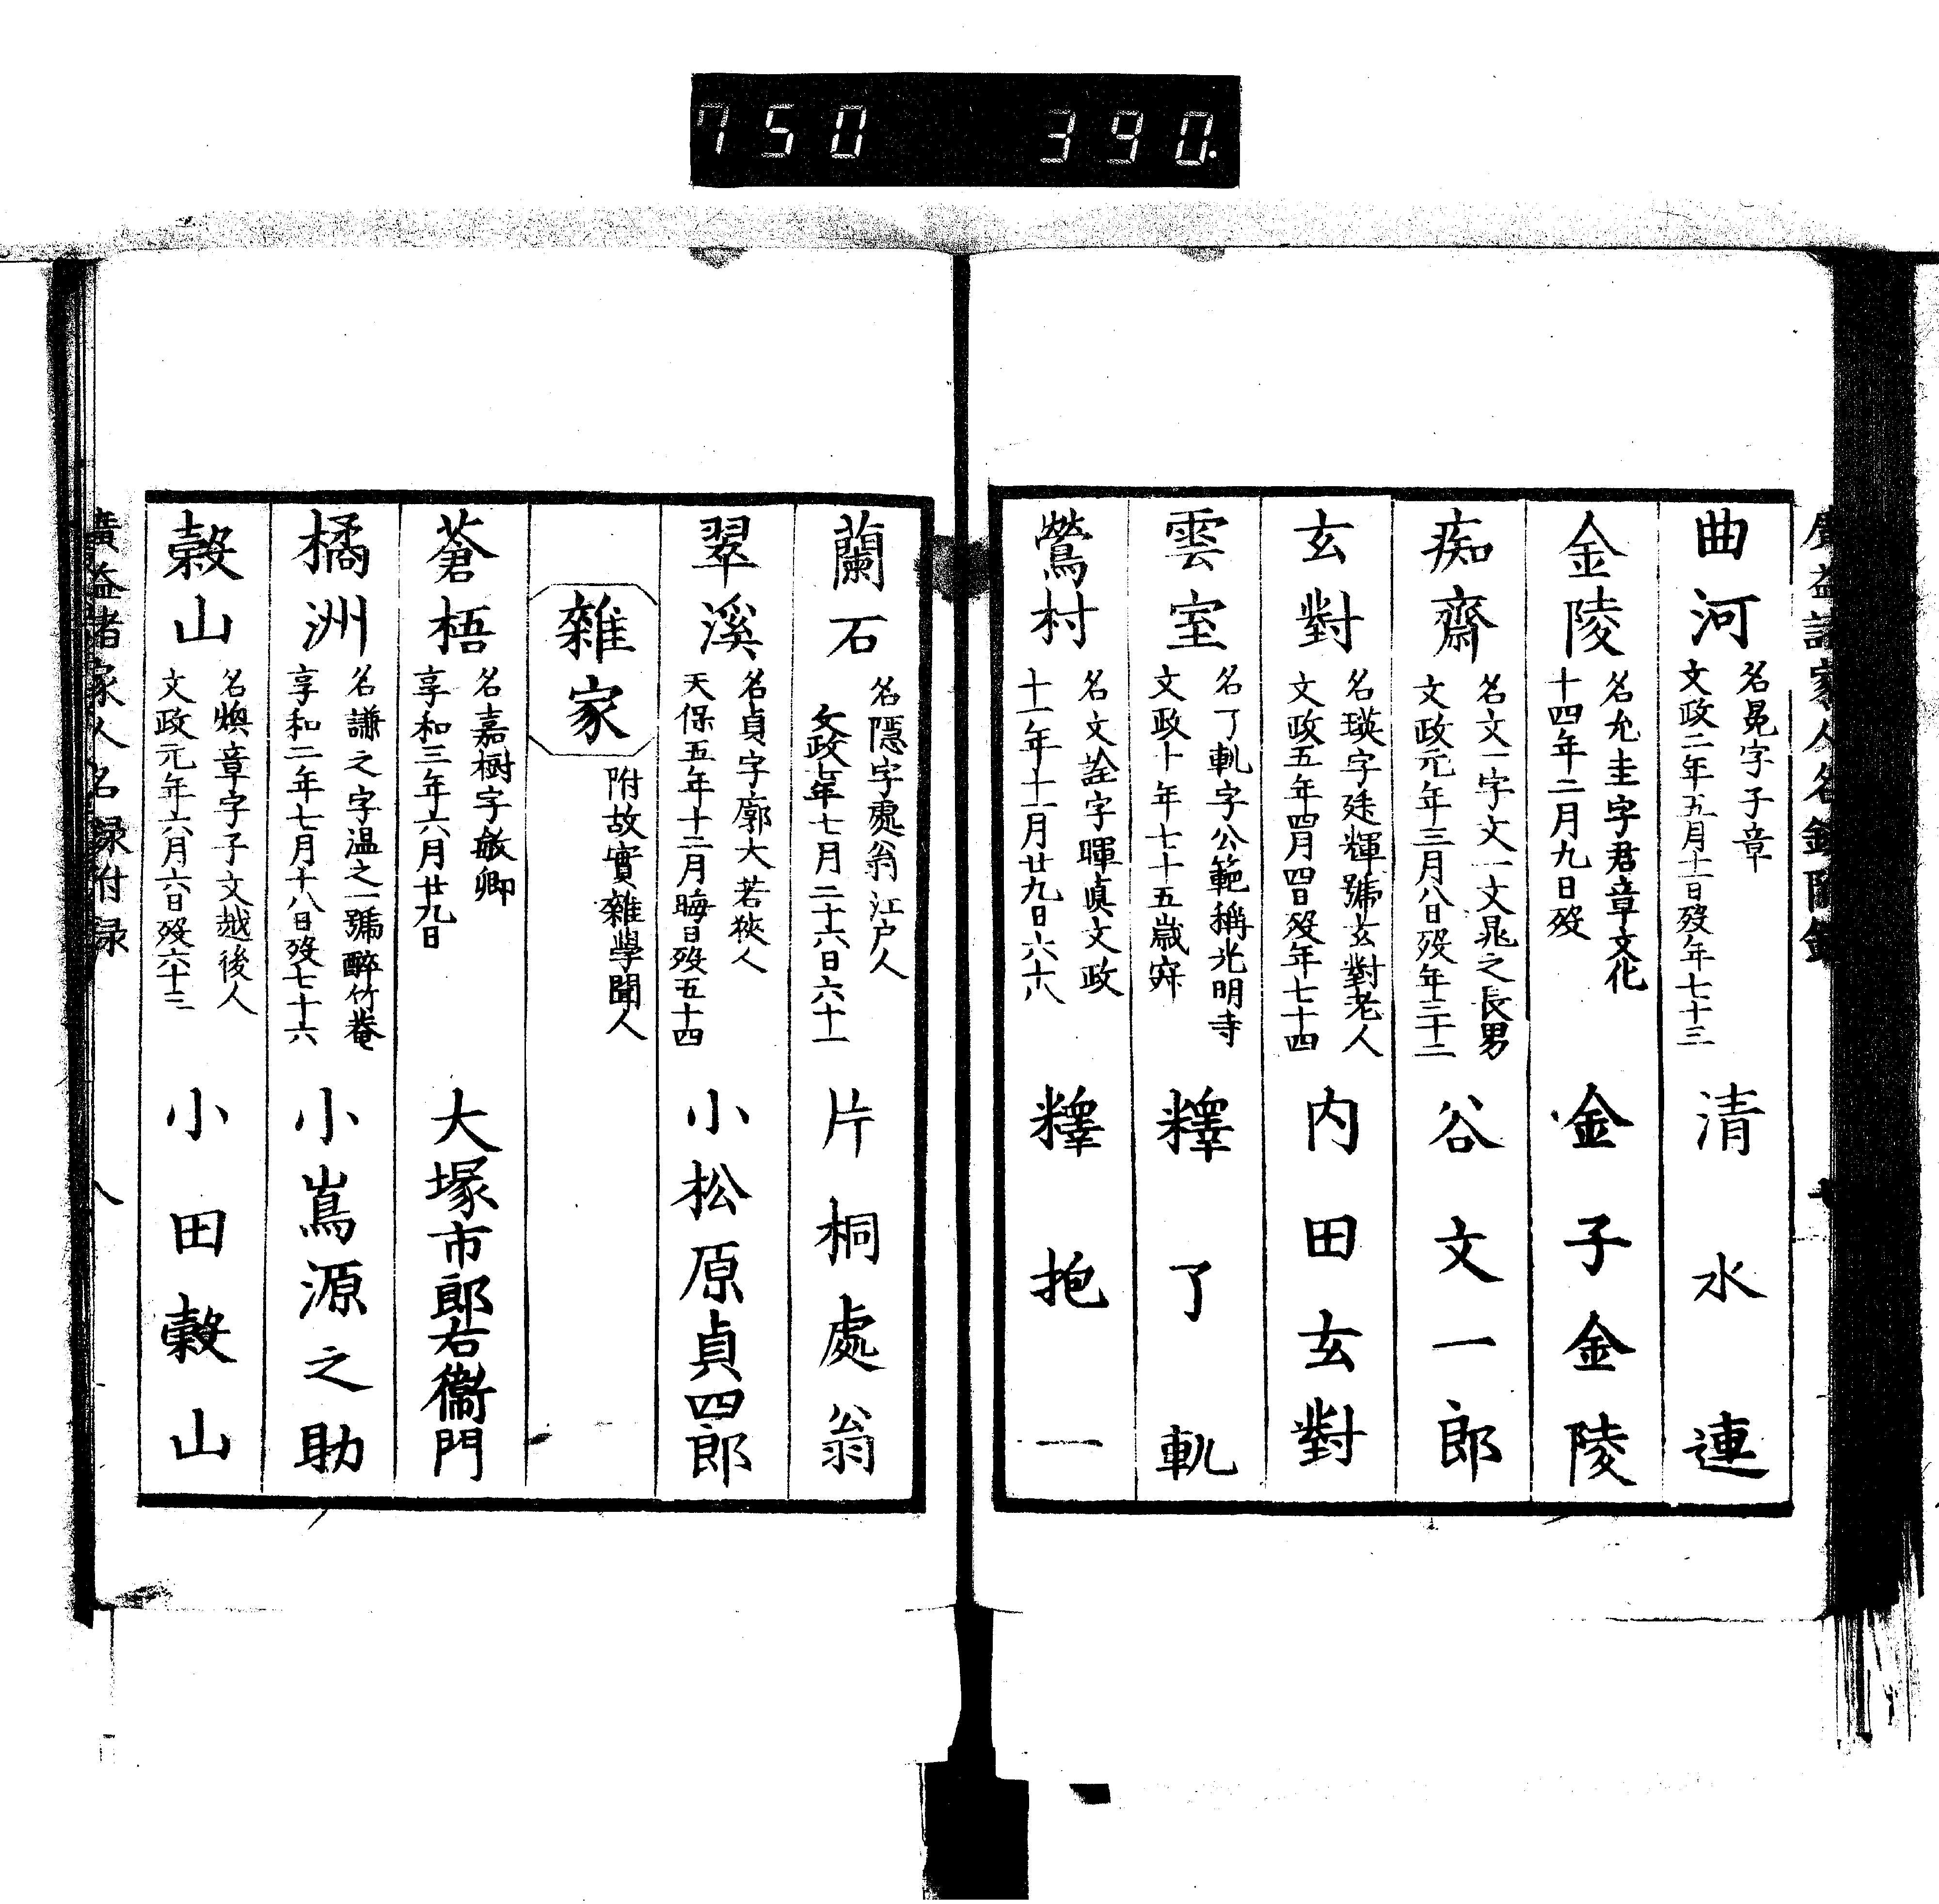 750 390.
曲河 名晃字子章
文政二年五月十一日歿年七十三 清水連
金陵 名允圭字君章文化
十四年二月九日歿 金子金陵
痴齋 名文一字文一文晁之長男
文政元年三月八日歿年三十二 谷文一郎
玄對 名瑛字廷輝號玄對老人
文政五年四月四日歿年七十四 内田玄對
雲室 名了軌字公範稱光明寺
文政十年七十五歳寂 釋了軌
鶯村 名文詮字暉眞文政
十一年十一月廿九日六十八 釋抱一
蘭石 名隱字處翁江户人
文政七年七月二十六日六十一 片桐處翁
翠溪 名貞字廓大若狹人
天保五年十二月晦日歿五十四 小松原貞四郎
雜家 附故實雜學聞人
蒼梧 名嘉樹字敬卿
享和三年六月廿九日 大塚市郎右衞門
橘洲 名謙之字温之一號醉竹菴
享和二年七月十八日歿七十六 小嶌源之助
穀山 名煥章字子文越後人
文政元年六月六日歿六十三 小田穀山
廣益諸家人名録附録 八